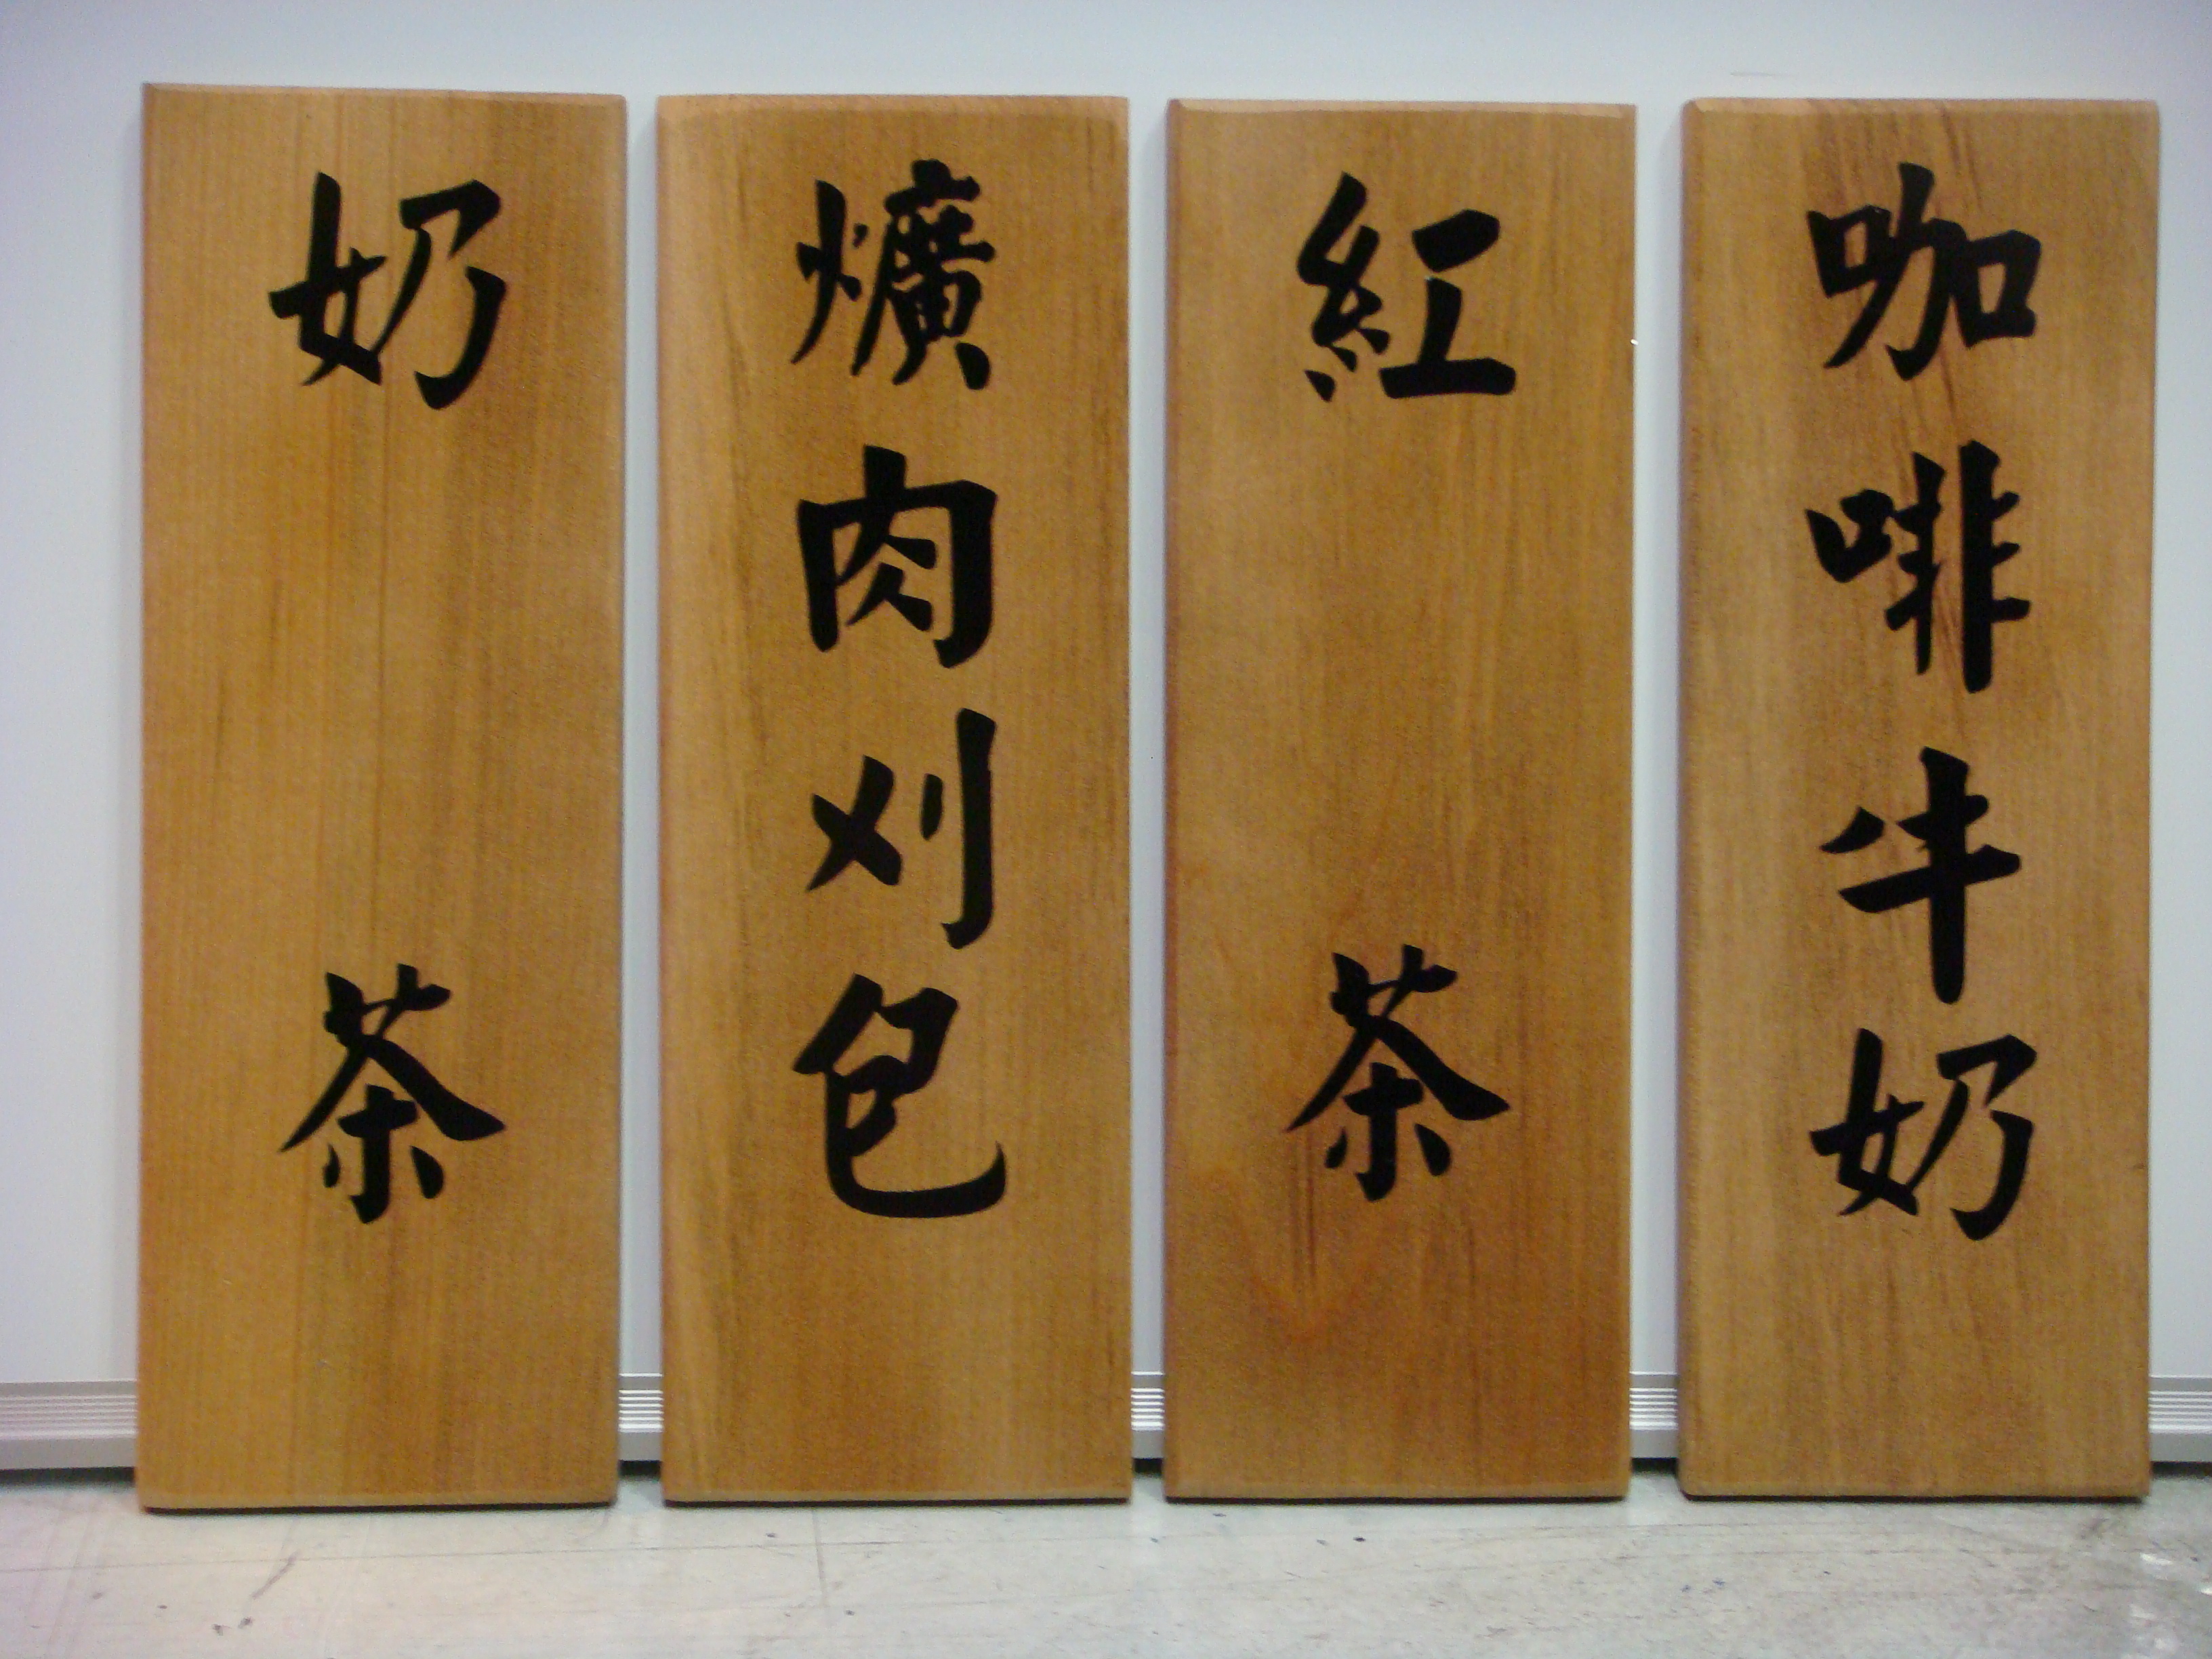 咖啡牛奶
紅茶
爌肉刈包
奶茶